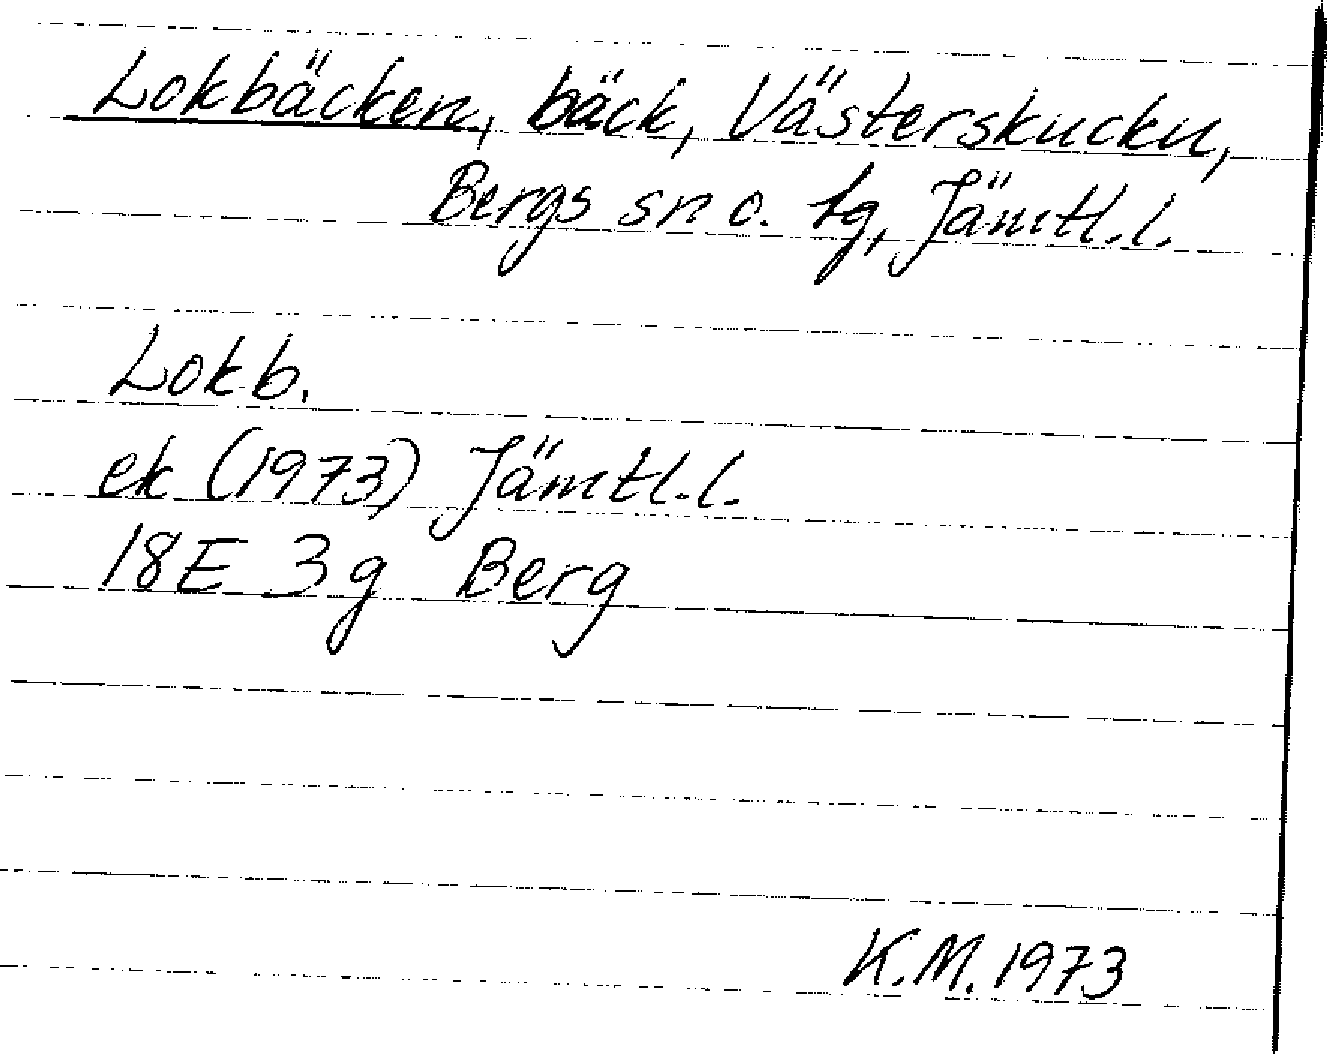 Lokbäcken, bäck, Västerskucku,
Bergs sn o. tg, Jämtl. l.
Lokb.
ek (1973) Jämtl. l.
18E 3g Berg
K.M. 1973